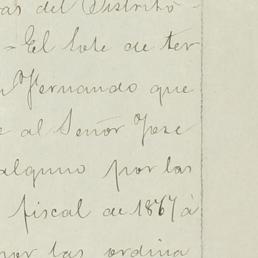 as del Distrito -
- El Lote de ter
n Fernando que
e al Señor Jose
alguno por las
fiscal de 1867 à
por las ordina